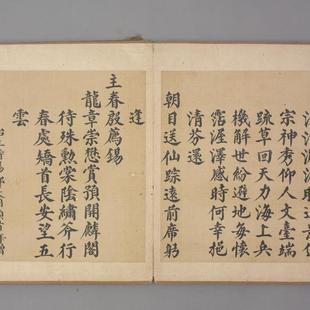 宗神秀仰人文臺端
疏草回天力海上兵
機解世紛避地每懷
霑渥澤感時何幸挹
清芬還
朝日送仙踪遠前席躬
逢
主春殷薦錫
龍章崇懋賞預開麟閣
待殊勲棠陰繡斧行
春處矯首長安望五
雲